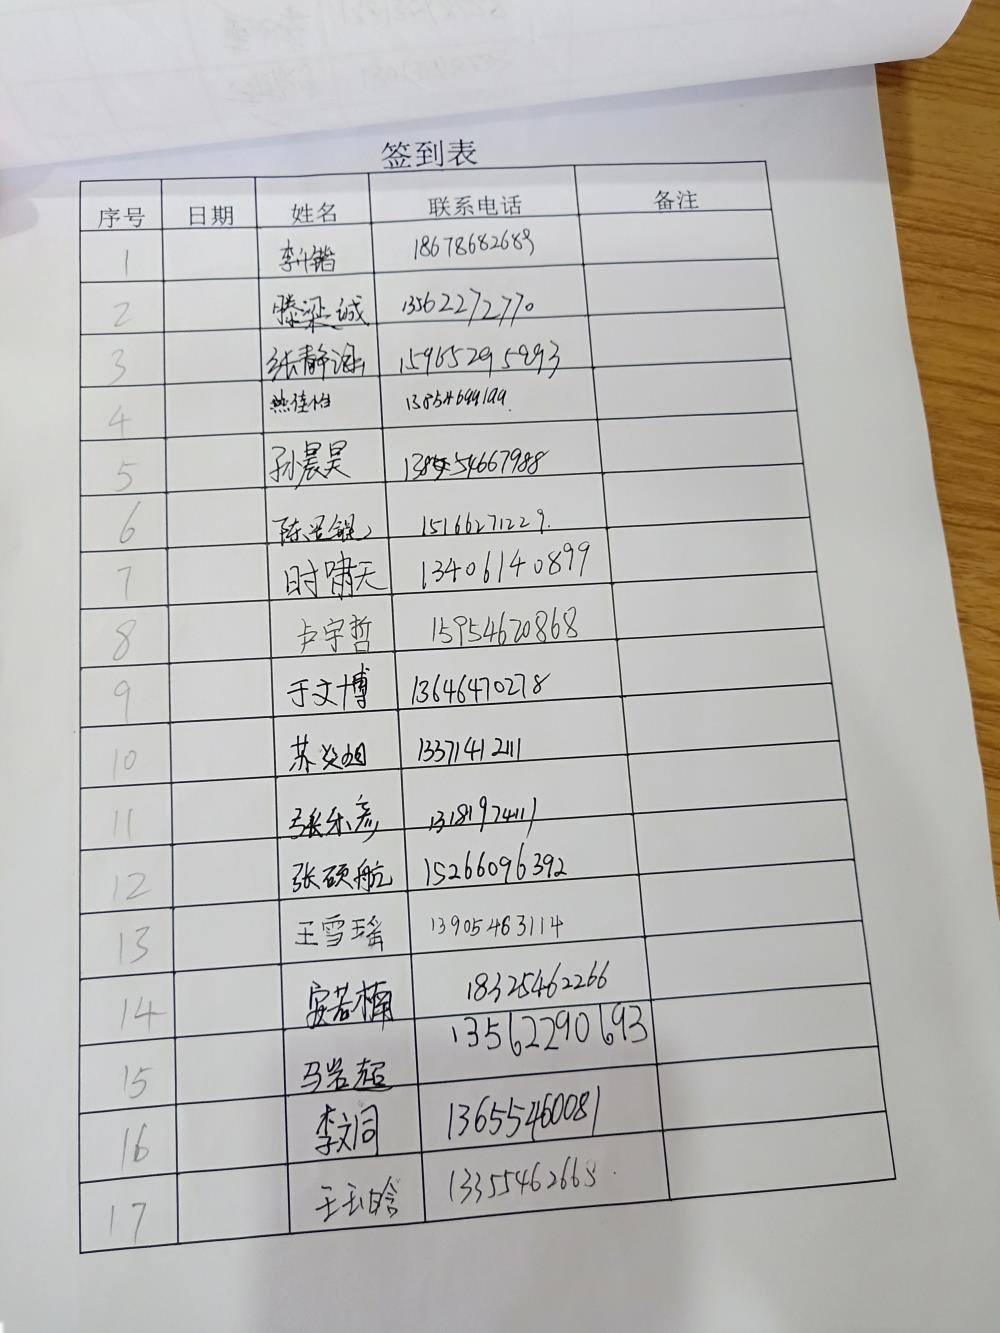 签到表
序号 日期 姓名 联系电话 备注
1 李 18678682689
2 滕梁诚 13562272770
3 张静涵 15965295993
4 13854699199
5 孙晨昊 54667988
6 陈 15166271229
7 时啸天 13406140899
8 卢宇哲 15954620868
9 于文博 13646470278
10 苏 13371412111
11 张乐彦
12 张硕航 15266096392
13 王雪瑶 13905463114
14 安若楠 18325462266
15 马岩超 13562290693
16 李文同 13655460081
17 王玉晗 13355462668